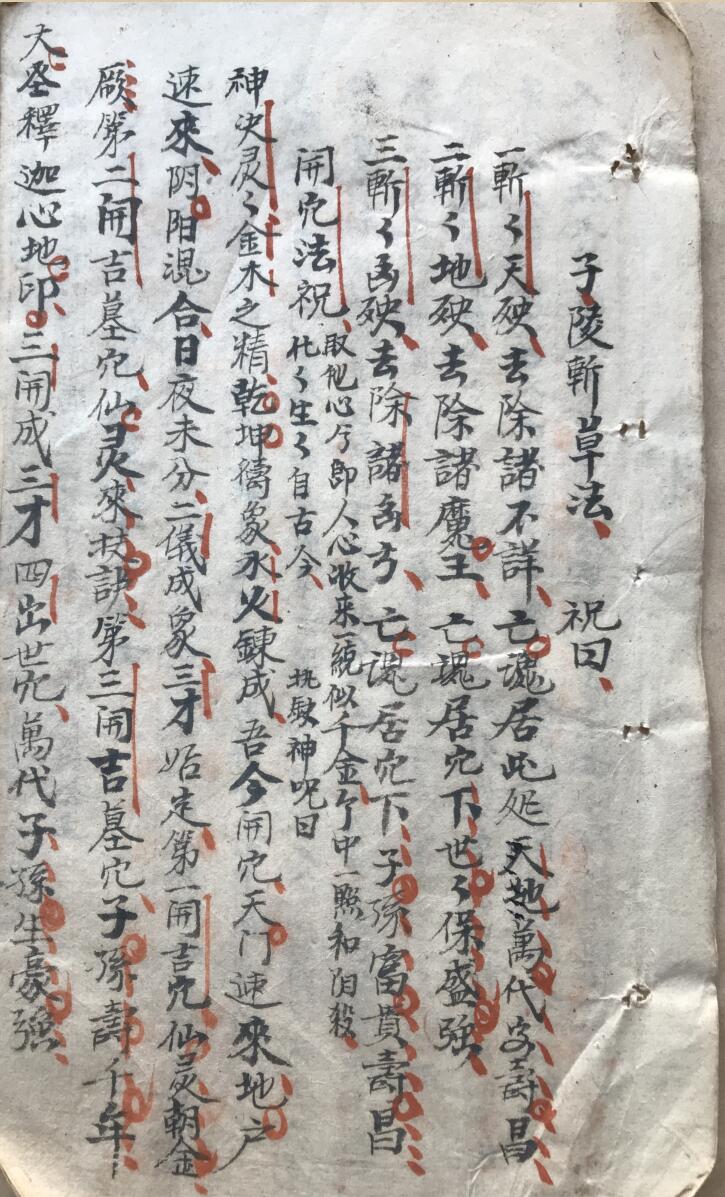 子陵斬草法、 祝曰、
一斬〻天殃、去除諸不詳、亡魂居此処天地萬代字壽昌、
二斬〻地殃、去除諸魔王、亡魂居穴下、世〻保盛強、
三斬〻凶殃、去除諸凶方、亡魂居穴下、子孫富貴壽昌、
開穴法祝、
取他心兮即人心收来一統似千金个中一點和陽殺、
化〻生〻自古今、 執敕神咒曰
神决灵〻金木之精、乾坤禱象水火鍊成、吾今開穴、天门速來、地户
速來、阴阳混合日夜未分、二儀成象三才始定、第一開吉穴仙灵朝金
厥第二開吉墓穴、仙灵來扶訣第三開吉墓穴、子孫壽千年、
大圣釋迦心地印、三開成三才四出世穴、萬代子孫生豪强